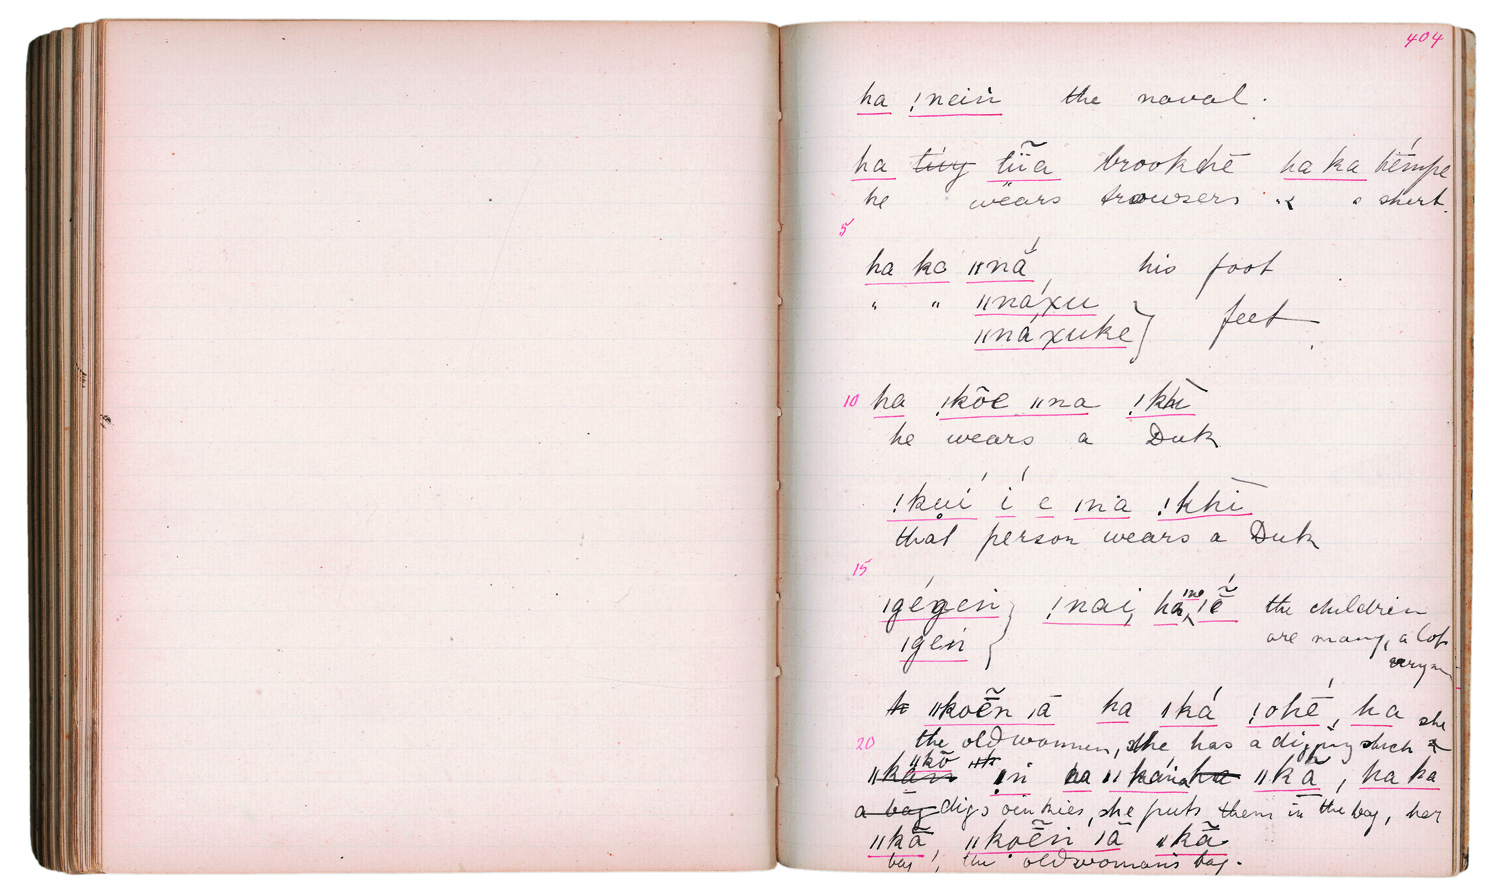 404
ha !nein the naval.
ha tiiy tũa brookhē ha ka hēmpe
he wears trowsers " a shirt.
5
ha ka ǁnă, his foot
" " ǁnáxu
ǁnáxuke } feet
10 ha !kōe ǁna !khì
he wears a Duk
!kui í e ǀna !khī
that person wears a Duk
15
ǀgégen } !nai, ha ǀẽ the children
ǀgen are many, a lot
ǁkoẽn ǀā ha ǀká !ohé, ha she
20 the old women, she has a digging stick
ǁkān ǁkō !n ha ǁkána ha ǁkã, ha ka
a bag digs oinkies, she puts them in the bag, her
ǁkã ǁkoẽn ǀā ǁkã
bag, the oldwoman's bag.